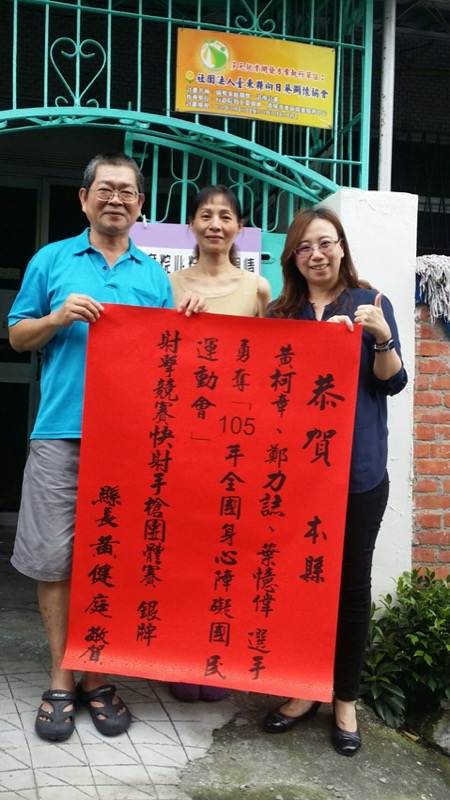 社團法人臺東縣向日葵關懷協會
恭賀 本縣
黃柯章、鄭力誌、葉憶偉 選手
勇奪「105年全國身心障礙國民
運動會」
射擊競賽快射手槍團體賽 銀牌
縣長 黃健庭 敬賀